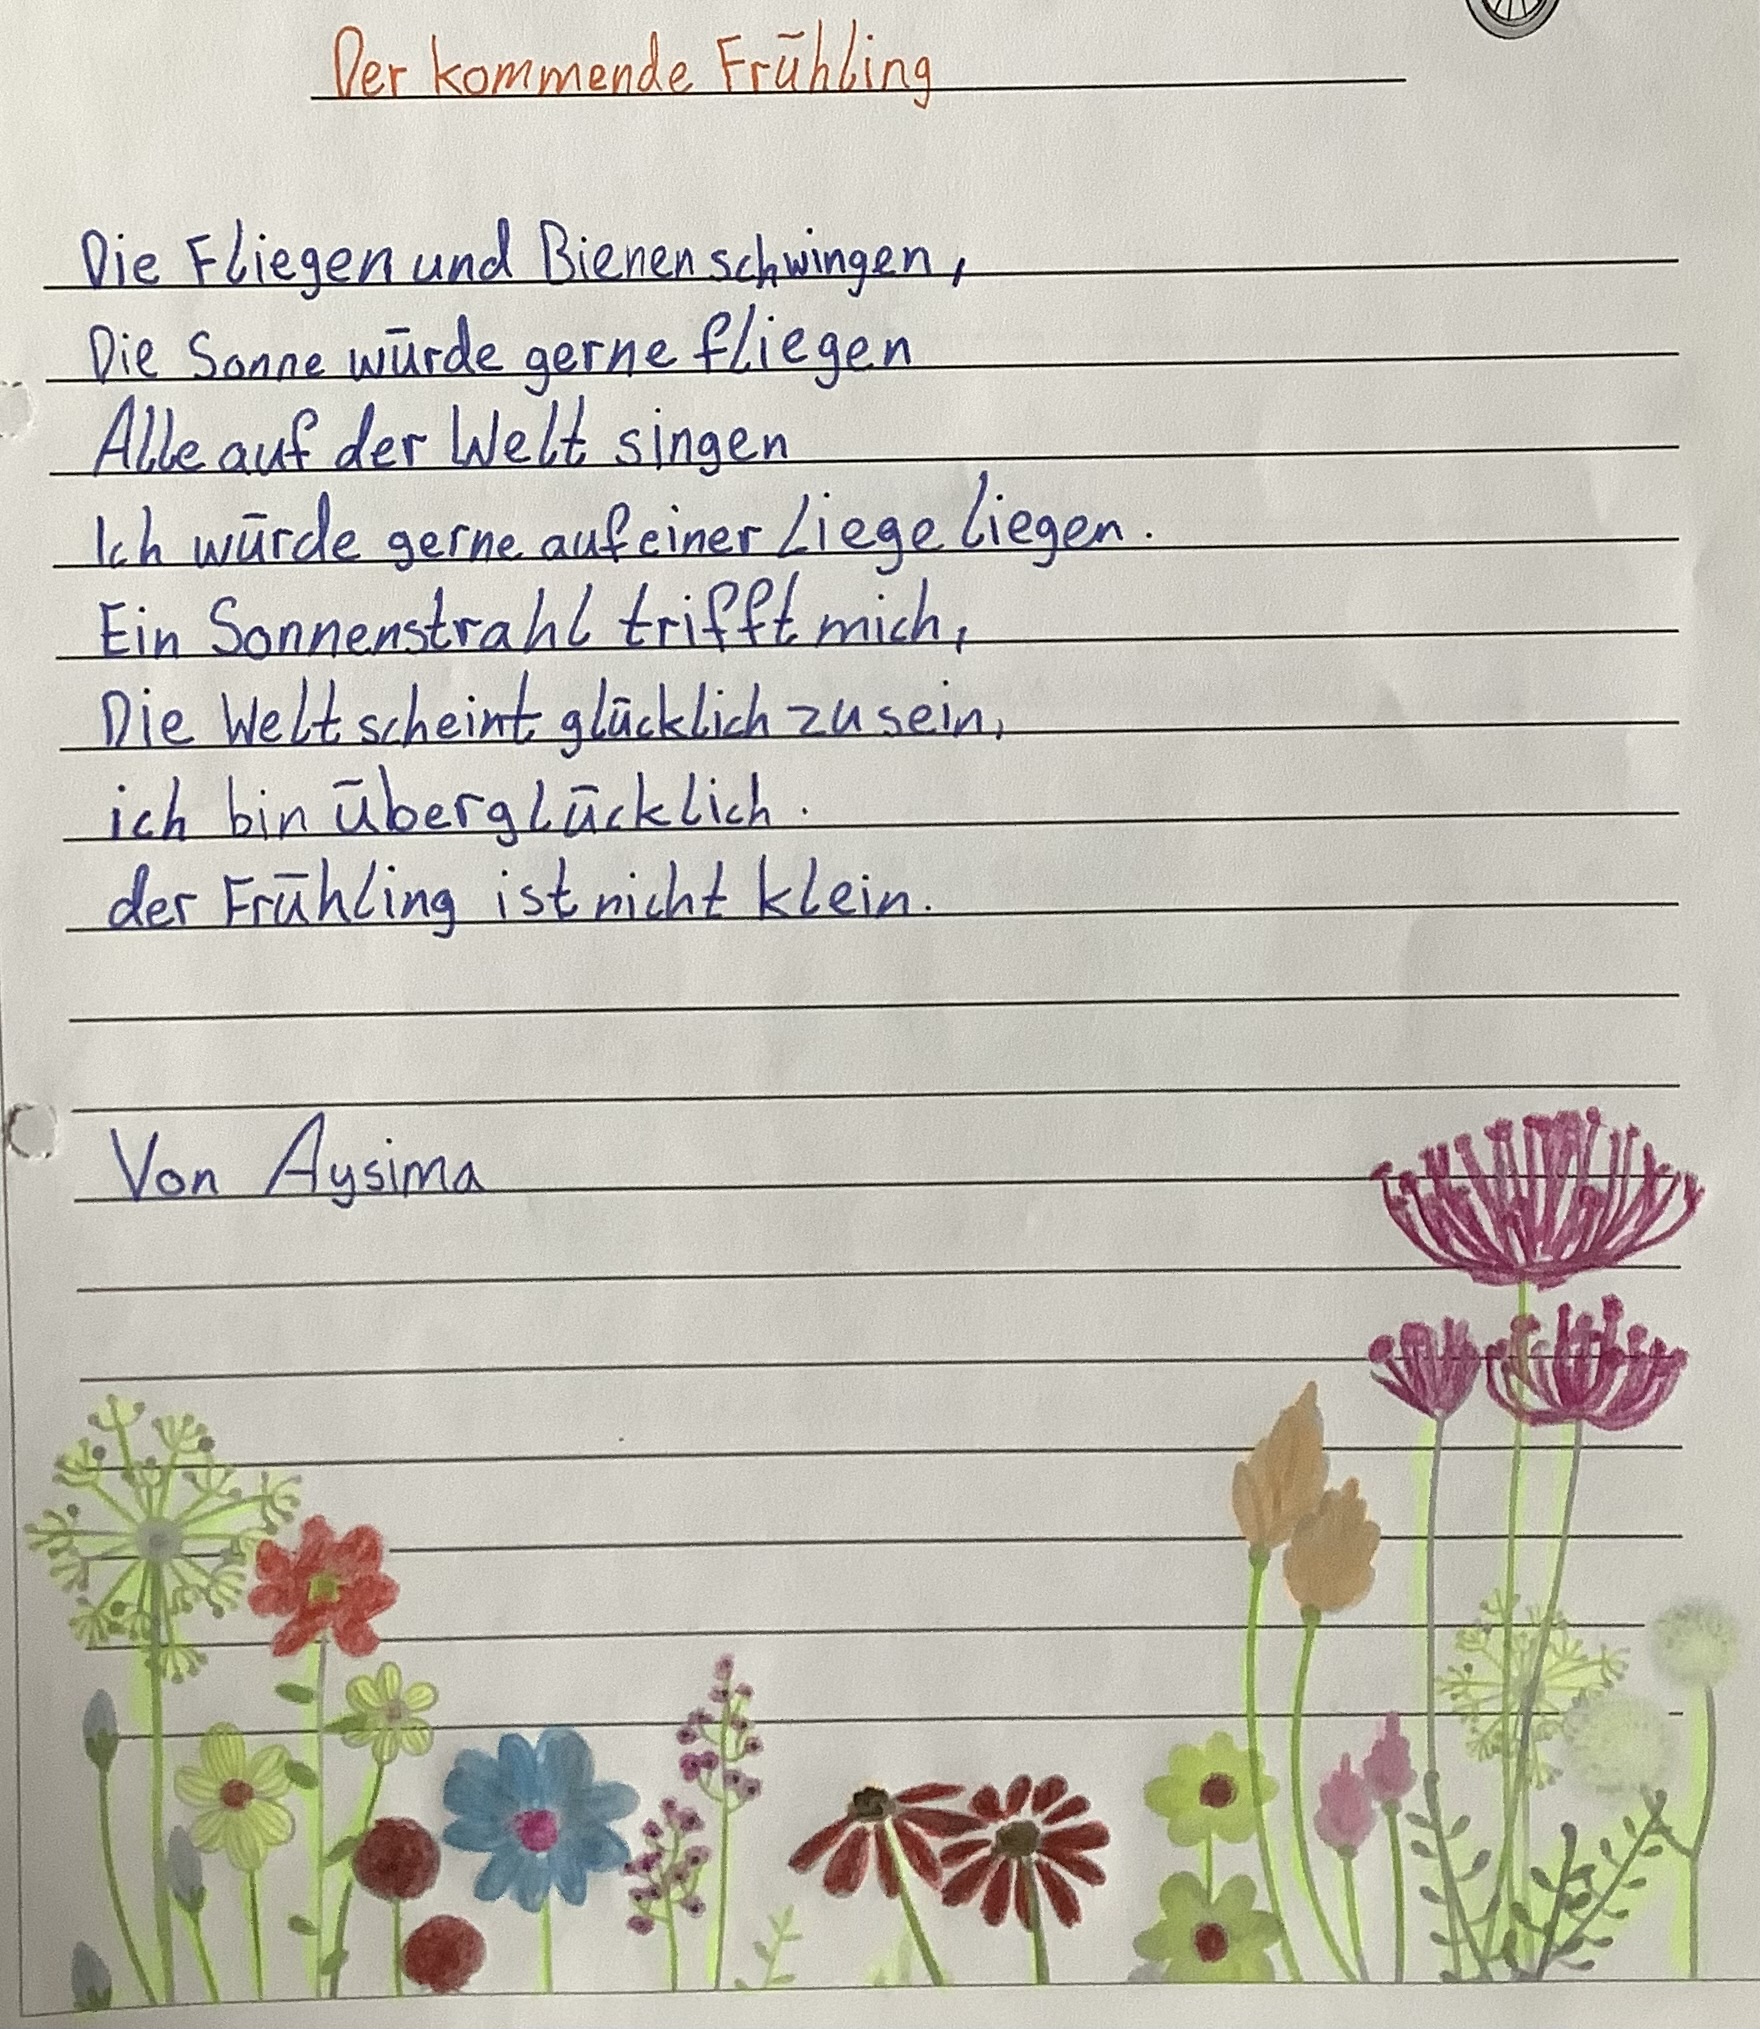 Der kommende Frühling
Die Fliegen und Bienen schwingen,
Die Sonne würde gerne fliegen
Alle auf der Welt singen
Ich würde gerne auf einer Liege liegen.
Ein Sonnenstrahl trifft mich,
Die Welt scheint glücklich zu sein,
ich bin überglücklich.
der Frühling ist nicht klein.
Von Aysima